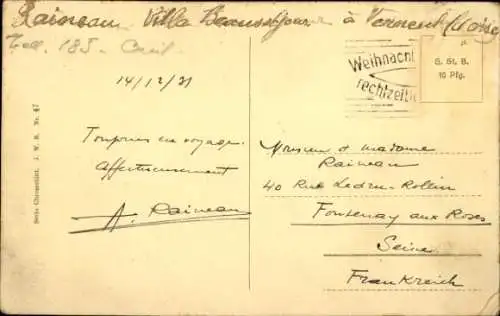 Raineau Villa Beausejour à Verneuil (Oise)
Tel. 185 - Creil
Weihnacht
rechtzeitig
S. St. B.
10 Pfg.
14/12/31
Toujours en voyage.
Affectueusement
A. Raineau
Monsieur et madame
Raineau
40 Rue Ledru-Rollin
Fontenay aux Roses
Seine
Frankreich
J. W. B. Nr. 47